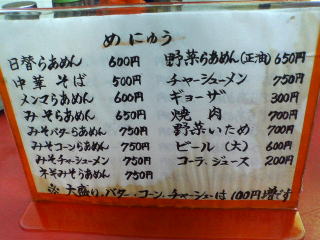 めにゅう
日替らあめん 600円
中華そば 500円
メンマらあめん 600円
みそらあめん 650円
みそバターらあめん 750円
みそコーンらあめん 750円
みそチャーシューメン 750円
ネギみそらあめん 750円
野菜らあめん(正油) 650円
チャーシューメン 750円
ギョーザ 300円
焼肉 700円
野菜いため 700円
ビール(大) 600円
コーラ、ジュース 200円
※大盛り、バター、コーン、チャーシューは100円増です